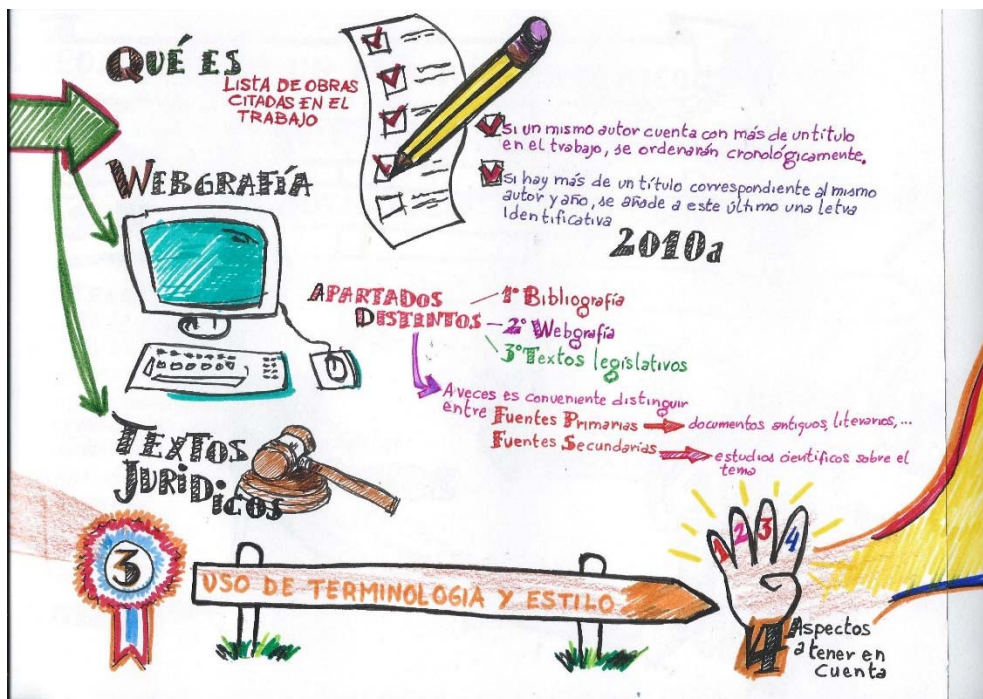 QUÉ ES
LISTA DE OBRAS
CITADAS EN EL
TRABAJO
Si un mismo autor cuenta con más de un título
en el trabajo, se ordenarán cronológicamente.
Si hay más de un título correspondiente al mismo
autor y año, se añade a este último una letra
identificativa
2010a
WEBGRAFÍA
APARTADOS
DISTINTOS
1º Bibliografía
2º Webgrafía
3º Textos legislativos
A veces es conveniente distinguir
entre Fuentes Primarias → documentos antiguos, literarios,...
Fuentes Secundarias → estudios científicos sobre el
tema
TEXTOS
JURIDICOS
3
USO DE TERMINOLOGIA Y ESTILO
1 2 3 4
4 Aspectos
a tener en
cuenta